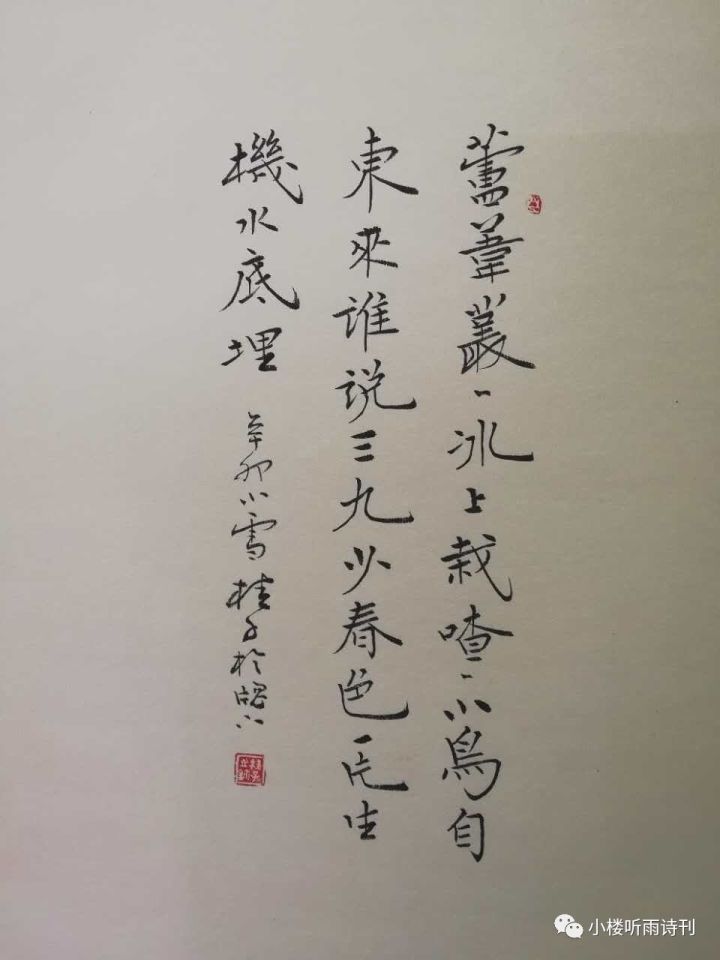 蘆葦叢〻冰上栽喳〻小鳥自
東來谁说三九少春色一片生
機水底埋
辛卯小雪桂子於
小楼听雨诗刊